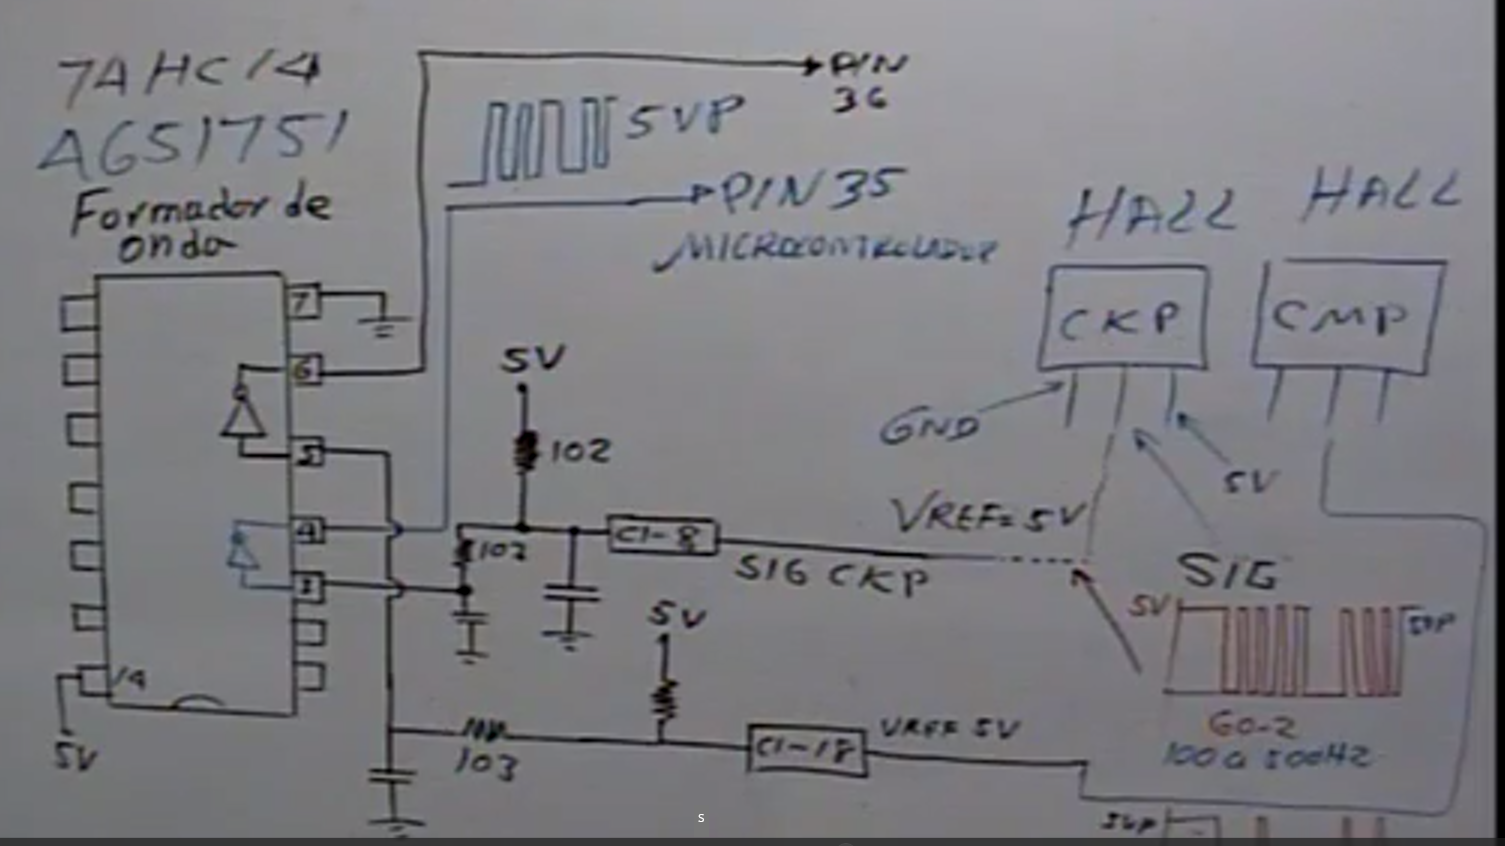 7AHC14
AG51751
Formador de
onda
PIN
36
5VP
PIN 35
MICROCONTROLADOR
HALL
HALL
CKP
CMP
7
6
5
4
3
14
5V
5V
102
102
C1-8
SIG CKP
GND
5V
VREF=5V
SIG
5V
50P
60-2
100 a 500HZ
5V
103
C1-18
VREF 5V
5VP
s